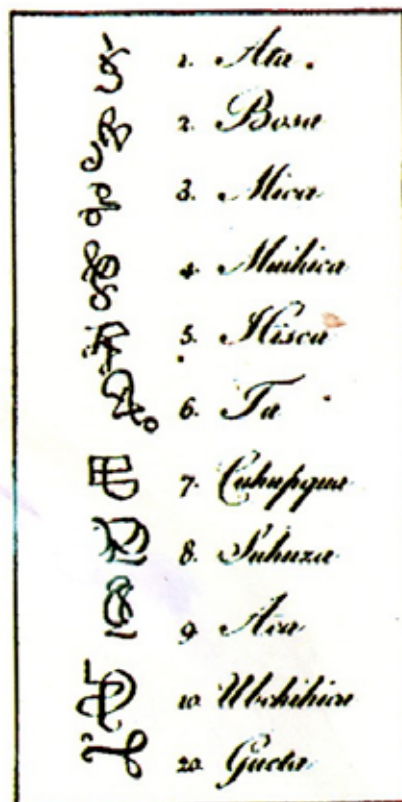 1. Ata.
2. Bosa
3. Mica
4. Muihica
5. Hisca
6. Ta
7. Cuhupqua
8. Suhuza
9. Aca
10. Ubchihica
20. Gueta